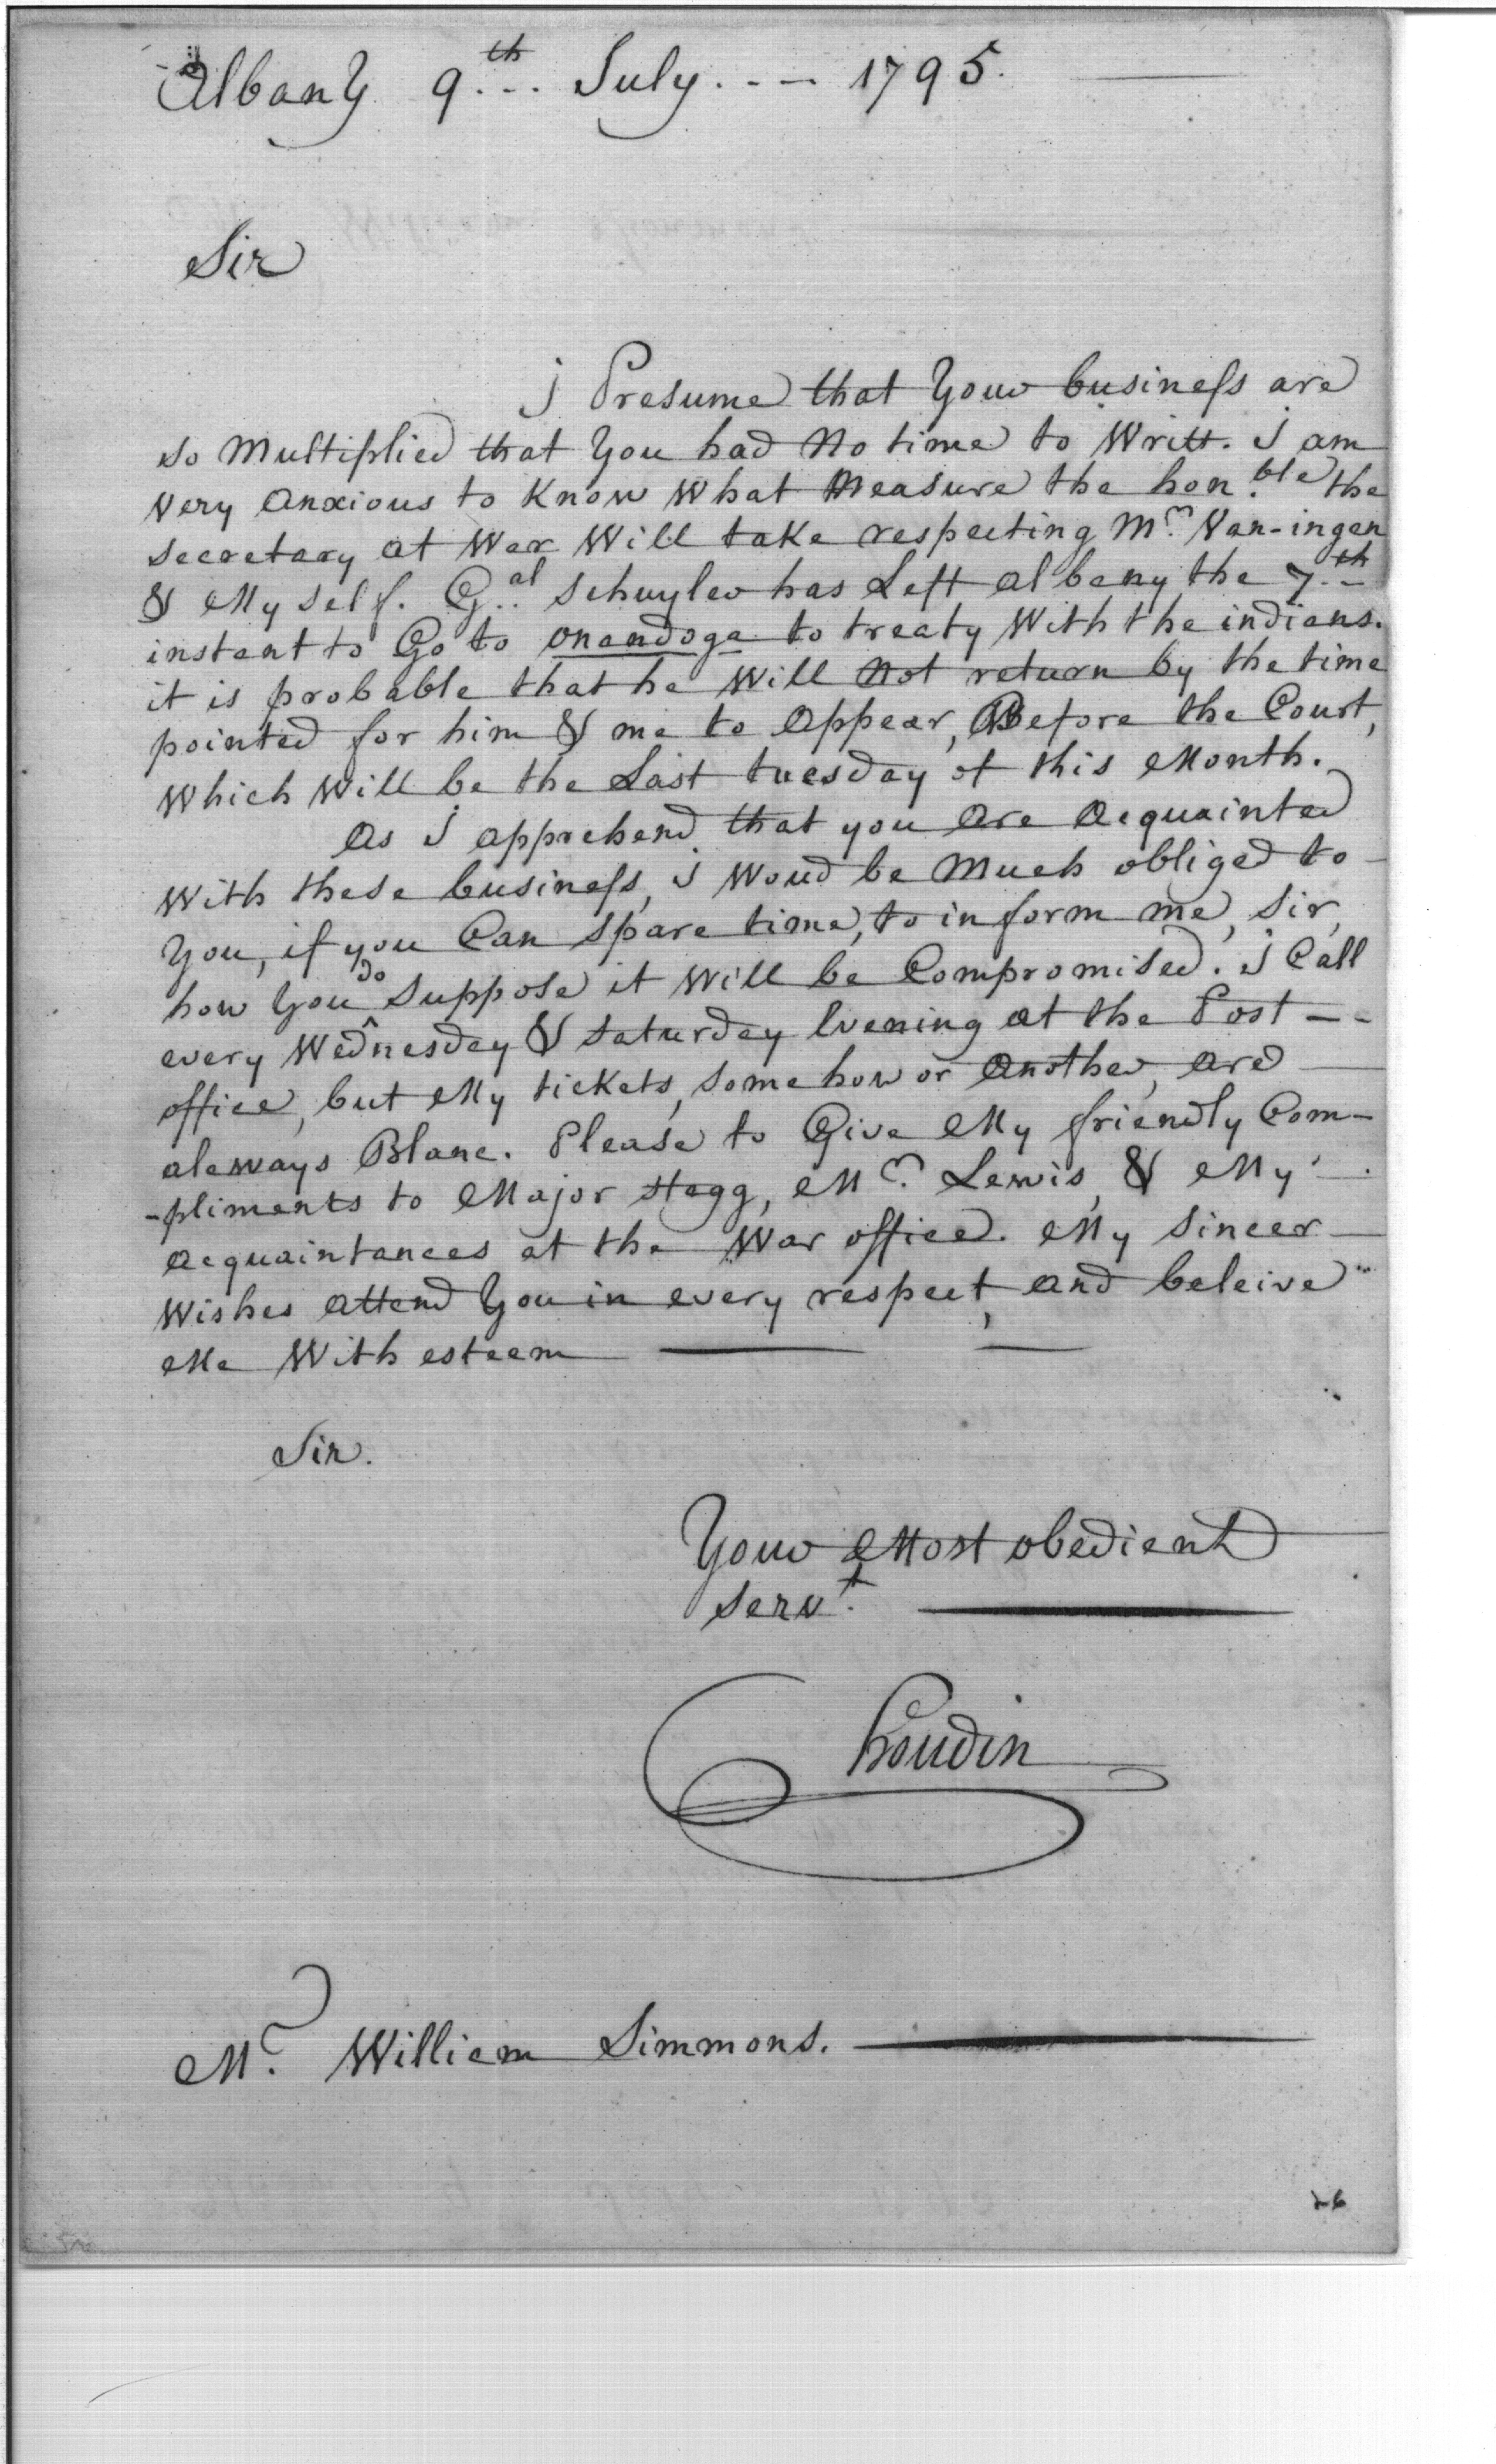 Albany 9th July 1795.
Sir
J Presume that Your business are
so Multiplied that You had No time to Writt. J am
Very Anxious to Know What Measure the hon.ble the
Secretary at War Will take respecting Mr. Van-ingen
& My self. G.al Schuyler has Left albany the 7th
instant to Go to onandoga to treaty With the indians.
it is probable that he Will Not return by the time
pointed for him & me to Appear, Before the Court,
Which Will be the Last tuesday of this Month.
As J apprehend that you Are Acquainted
With these business, J Woud be Much obliged to
You, if you Can Spare time, to inform me, Sir,
how You do Suppose it Will be Compromised. J Call
every Wednesday & Saturday Evening at the Post
office, but My tickets, some how or Another, Are
aleways Blanc. Please to Give My friendly Com-
-pliments to Major Stagg, Mr. Lewis, & My
Acquaintances at the War office. My Sincer
Wishes Attend You in every respect, And beleive
Me With esteem
Sir.
Your Most obedient
Serv.t
Mr. William Simmons.
26